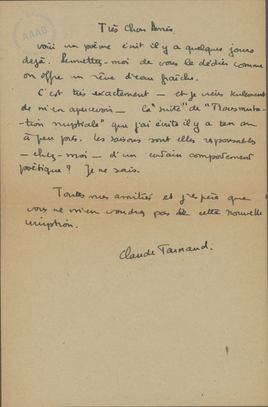 AAAB
Très Chers Amis,
voici un poème écrit il y a quelques jours
déjà. Permettez-moi de vous le dédier comme
on offre un rêve d'eau fraîche.
C'est très exactement – et je viens seulement
de m'en apercevoir – la "suite" de
mistrale" que j'ai écrite il y a ten an
à peu près. Les saisons sont elles responsables
– chez moi – d'un certain comportement
poétique ? Je ne sais.
Toutes mes amitiés et j'espère que
vous ne m'en voudrez pas de cette nouvelle
irruption.
Claude Tarnaud.